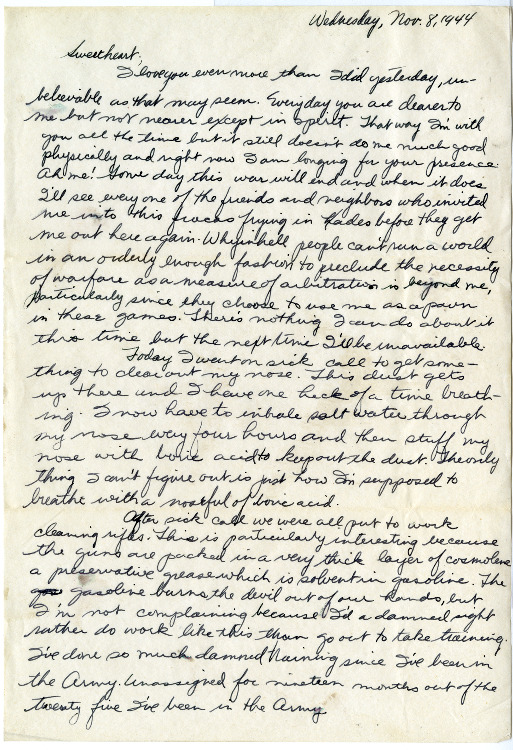 Wednesday, Nov. 8, 1944
Sweetheart,
I love you even more than I did yesterday, un-
believable as that may seem. Everyday you are dearer to
me but not nearer except in spirit. That way I'm with
you all the time but it still doesn't do me much good
physically and right now I am longing for your presence.
Ah me! Some day this war will end and when it does
I'll see every one of the friends and neighbors who invited
me into this fracas frying in hades before they get
me out here again. Why in hell people can't run a world
in an orderly enough fashion to preclude the necessity
of warfare as a measure of arbitration is beyond me,
particularly since they choose to use me as a pawn
in these games. There's nothing I can do about it
this time but the next time I'll be unavailable.
Today I went on sick call to get some-
thing to clear out my nose. This dust gets
up there and I have one heck of a time breath-
ing. I now have to inhale salt water through
my nose every four hours and then stuff my
nose with boric acid to keep out the dust. The only
thing I can't figure out is just how I'm supposed to
breathe with a noseful of boric acid.
After sick call we were all put to work
cleaning rifles. This is particularly interesting because
the guns are packed in a very thick layer of cosmolene
a preservative grease which is solvent in gasoline. The
gasoline burns the devil out of our hands, but
I'm not complaining because I'd a damned sight
rather do work like this than go out to take training.
I've done so much damned training since I've been in
the Army. Unassigned for nineteen months out of the
twenty five I've been in the Army